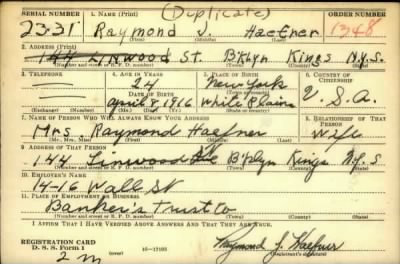 SERIAL NUMBER 1. NAME (Print) (Duplicate) ORDER NUMBER
2331 Raymond J. Haefner 1348
2. ADDRESS (Print)
144 LINWOOD ST. B'klyn Kings N.Y.S.
(Number and street or R. F. D. number) (Town) (County) (State)
3. TELEPHONE 4. AGE IN YEARS 5. PLACE OF BIRTH 6. COUNTRY OF CITIZENSHIP
24 New York
DATE OF BIRTH
April 8, 1916 White Plains U.S.A.
(Exchange) (Number) (Mo.) (Day) (Yr.) (Town) (State or country)
7. NAME OF PERSON WHO WILL ALWAYS KNOW YOUR ADDRESS 8. RELATIONSHIP OF THAT PERSON
Mrs Raymond Haefner Wife
(Mr., Mrs., Miss) (First) (Middle) (Last)
9. ADDRESS OF THAT PERSON
144 Linwood B'klyn Kings N.Y.S
(Number and street or R. F. D. number) (Town) (County) (State)
10. EMPLOYER'S NAME
14-16 Wall St
11. PLACE OF EMPLOYMENT OR BUSINESS
Banker's Trust Co
(Number and street or R. F. D. number) (Town) (County) (State)
I AFFIRM THAT I HAVE VERIFIED ABOVE ANSWERS AND THAT THEY ARE TRUE.
REGISTRATION CARD
D. S. S. Form 1 Raymond J. Haefner
2 m (Registrant's signature)